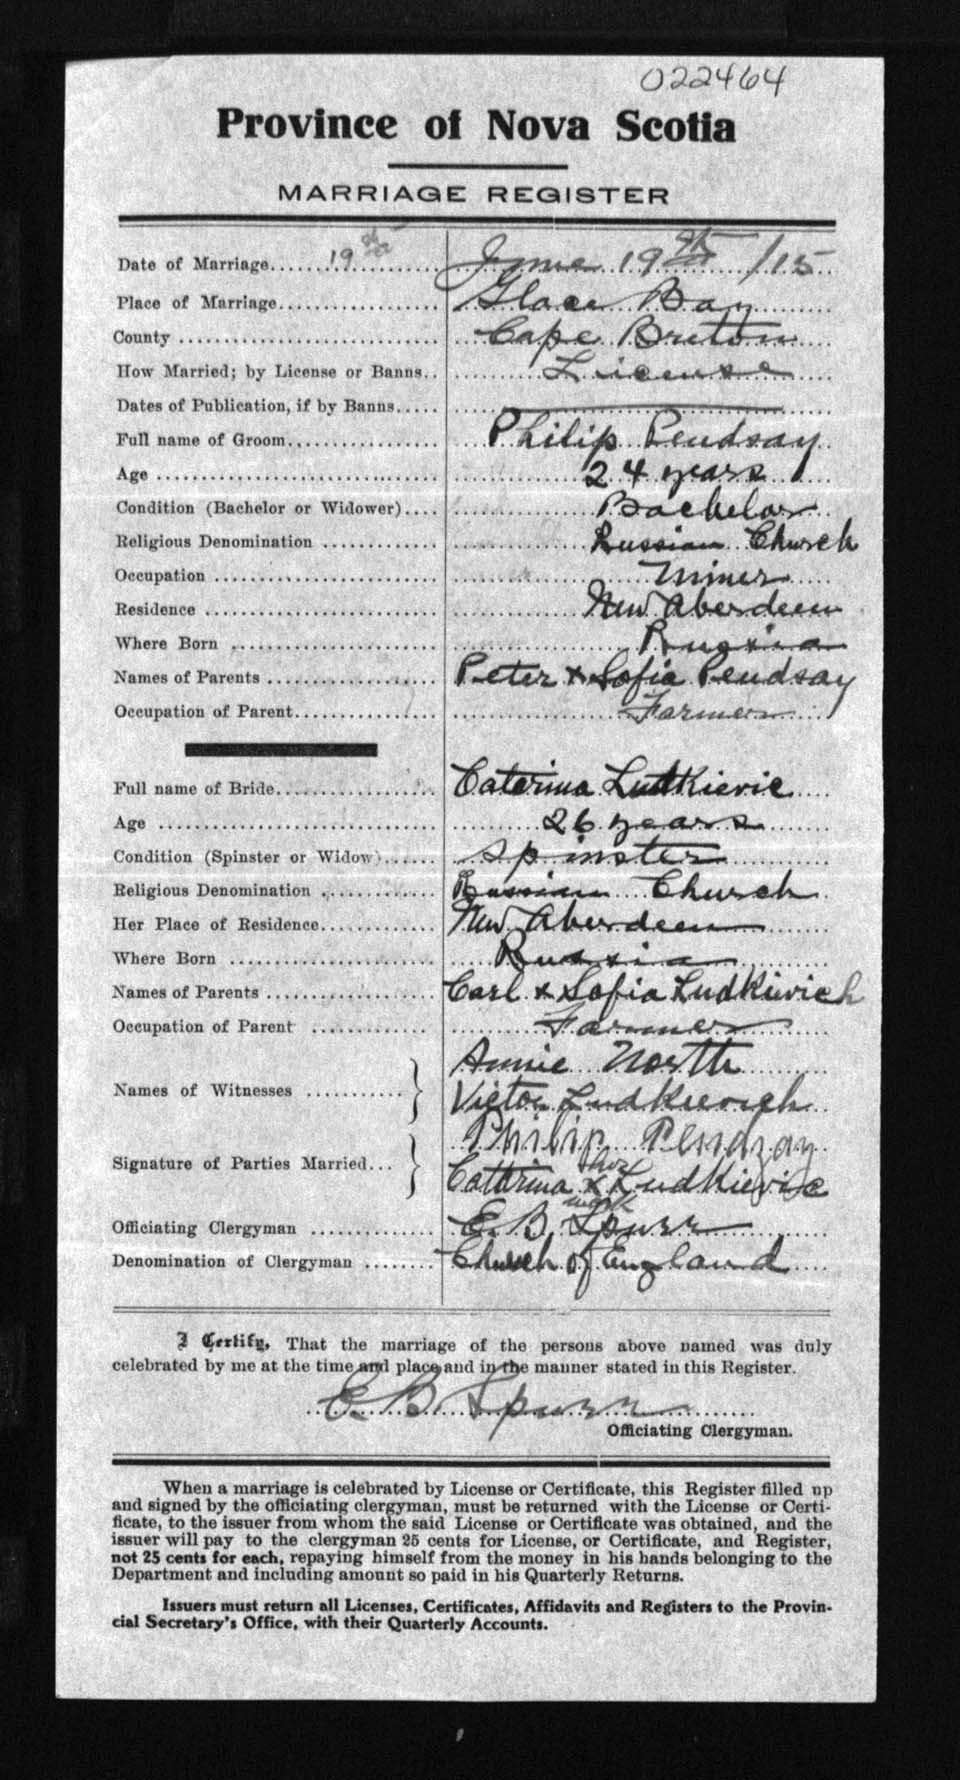 022464
Province of Nova Scotia
MARRIAGE REGISTER
Date of Marriage.....19th..... June 19th /15
Place of Marriage..... Glace Bay
County..... Cape Breton
How Married; by License or Banns.. License
Dates of Publication, if by Banns.....
Full name of Groom..... Philip Pendsay
Age..... 24 years
Condition (Bachelor or Widower).... Bachelor
Religious Denomination..... Russian Church
Occupation..... Miner
Residence..... New Aberdeen
Where Born..... Russia
Names of Parents..... Peter x Sofia Pendsay
Occupation of Parent..... Farmer
Full name of Bride..... Caterina Ludkievic
Age..... 26 years
Condition (Spinster or Widow)..... Spinster
Religious Denomination..... Russian Church
Her Place of Residence..... New Aberdeen
Where Born..... Russia
Names of Parents..... Carl x Sofia Ludkievich
Occupation of Parent..... Farmer
Annie North
Names of Witnesses.....
Victor Ludkievich
Philip Pendzay
Signature of Parties Married...
her
Cattrina x Ludkievic
mark
Officiating Clergyman..... E. B. Spurr
Denomination of Clergyman..... Church of England
I Certify, That the marriage of the persons above named was duly
celebrated by me at the time and place and in the manner stated in this Register.
E. B. Spurr
Officiating Clergyman.
When a marriage is celebrated by License or Certificate, this Register filled up
and signed by the officiating clergyman, must be returned with the License or Certi-
ficate, to the issuer from whom the said License or Certificate was obtained, and the
issuer will pay to the clergyman 25 cents for License, or Certificate, and Register,
not 25 cents for each, repaying himself from the money in his hands belonging to the
Department and including amount so paid in his Quarterly Returns.
Issuers must return all Licenses, Certificates, Affidavits and Registers to the Provin-
cial Secretary's Office, with their Quarterly Accounts.